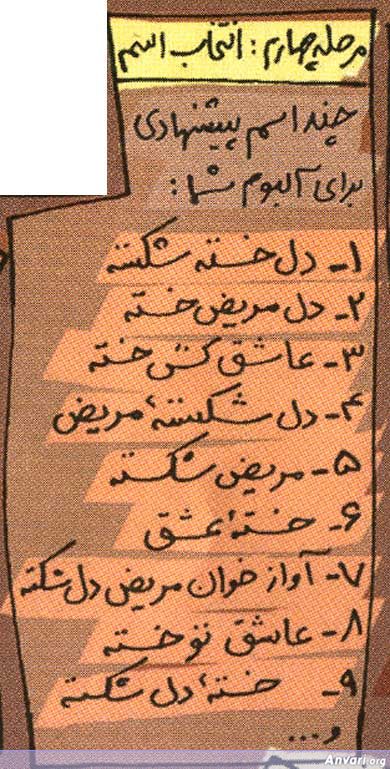 مرحله چهارم: انتخاب اسم
چند اسم پیشنهادی
برای آلبوم شما:
۱- دل خسته شکسته
۲- دل مریض خسته
۳- عاشق کش خسته
۴- دل شکستهٔ مریض
۵- مریض شکسته
۶- خستهٔ عشق
۷- آواز خوان مریض دل شکسته
۸- عاشق تو خسته
۹- خستهٔ دل شکسته
و...
Anvari.org